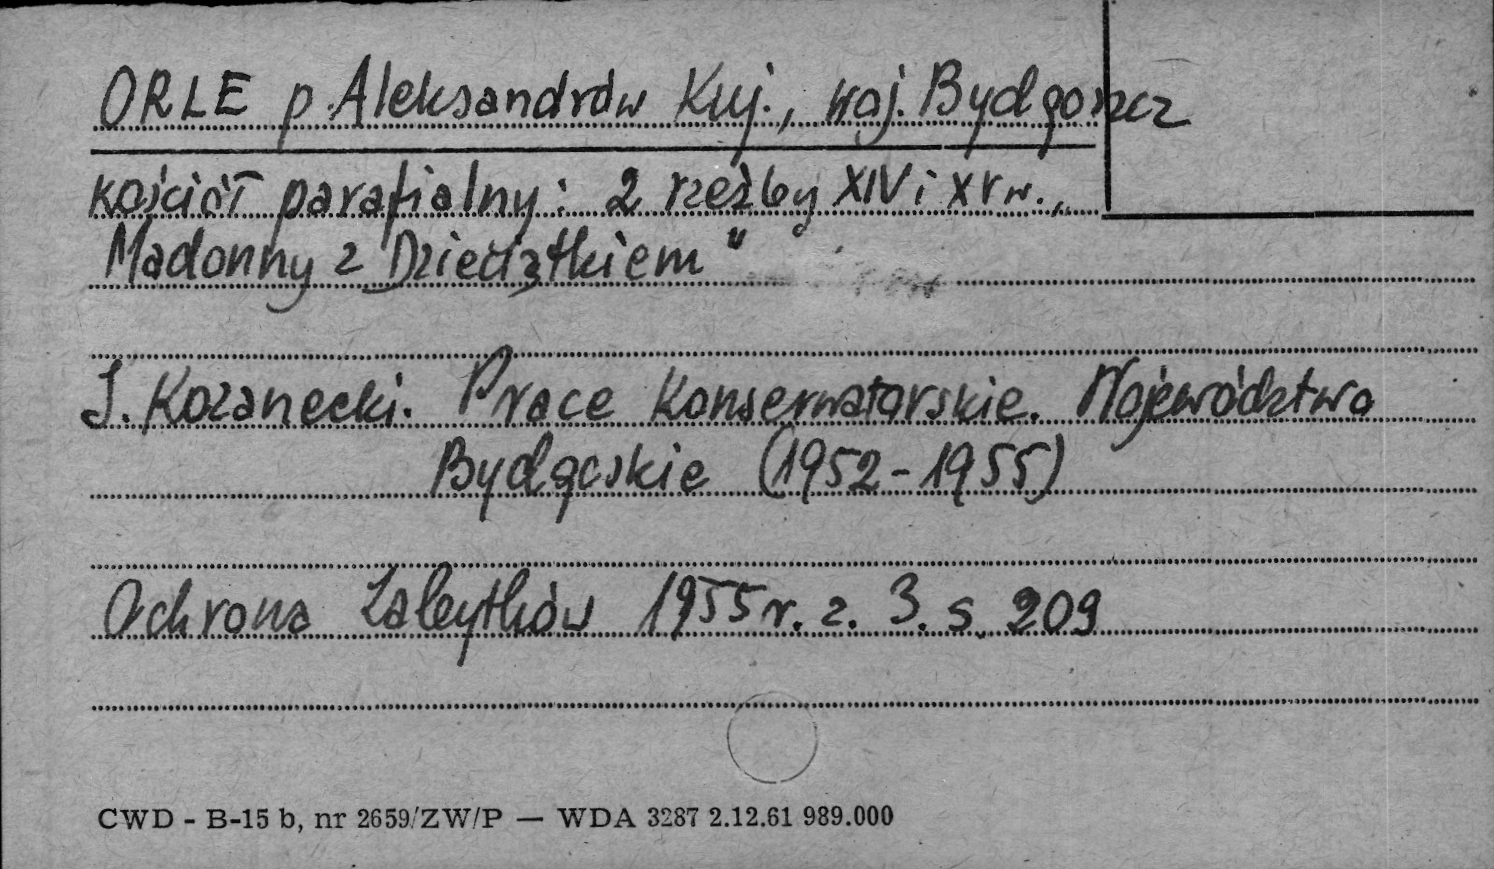 ORLE p. Aleksandrów Kuj., woj. Bydgoszcz
kościół parafialny: 2 rzeźby XIV i XV w. „
Madonny z Dzieciątkiem"
J. Kozanecki. Prace Konserwatorskie. Województwo
Bydgoskie (1952-1955)
Ochrona Zabytków 1955 r. z. 3. s. 209
CWD - B-15 b, nr 2659/ZW/P — WDA 3287 2.12.61 989.000